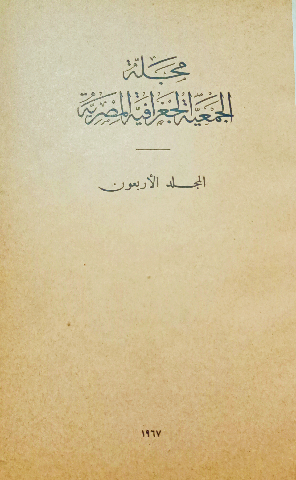 مجلة
الجمعية الجغرافية المصرية
المجلد الأربعون
١٩٦٧